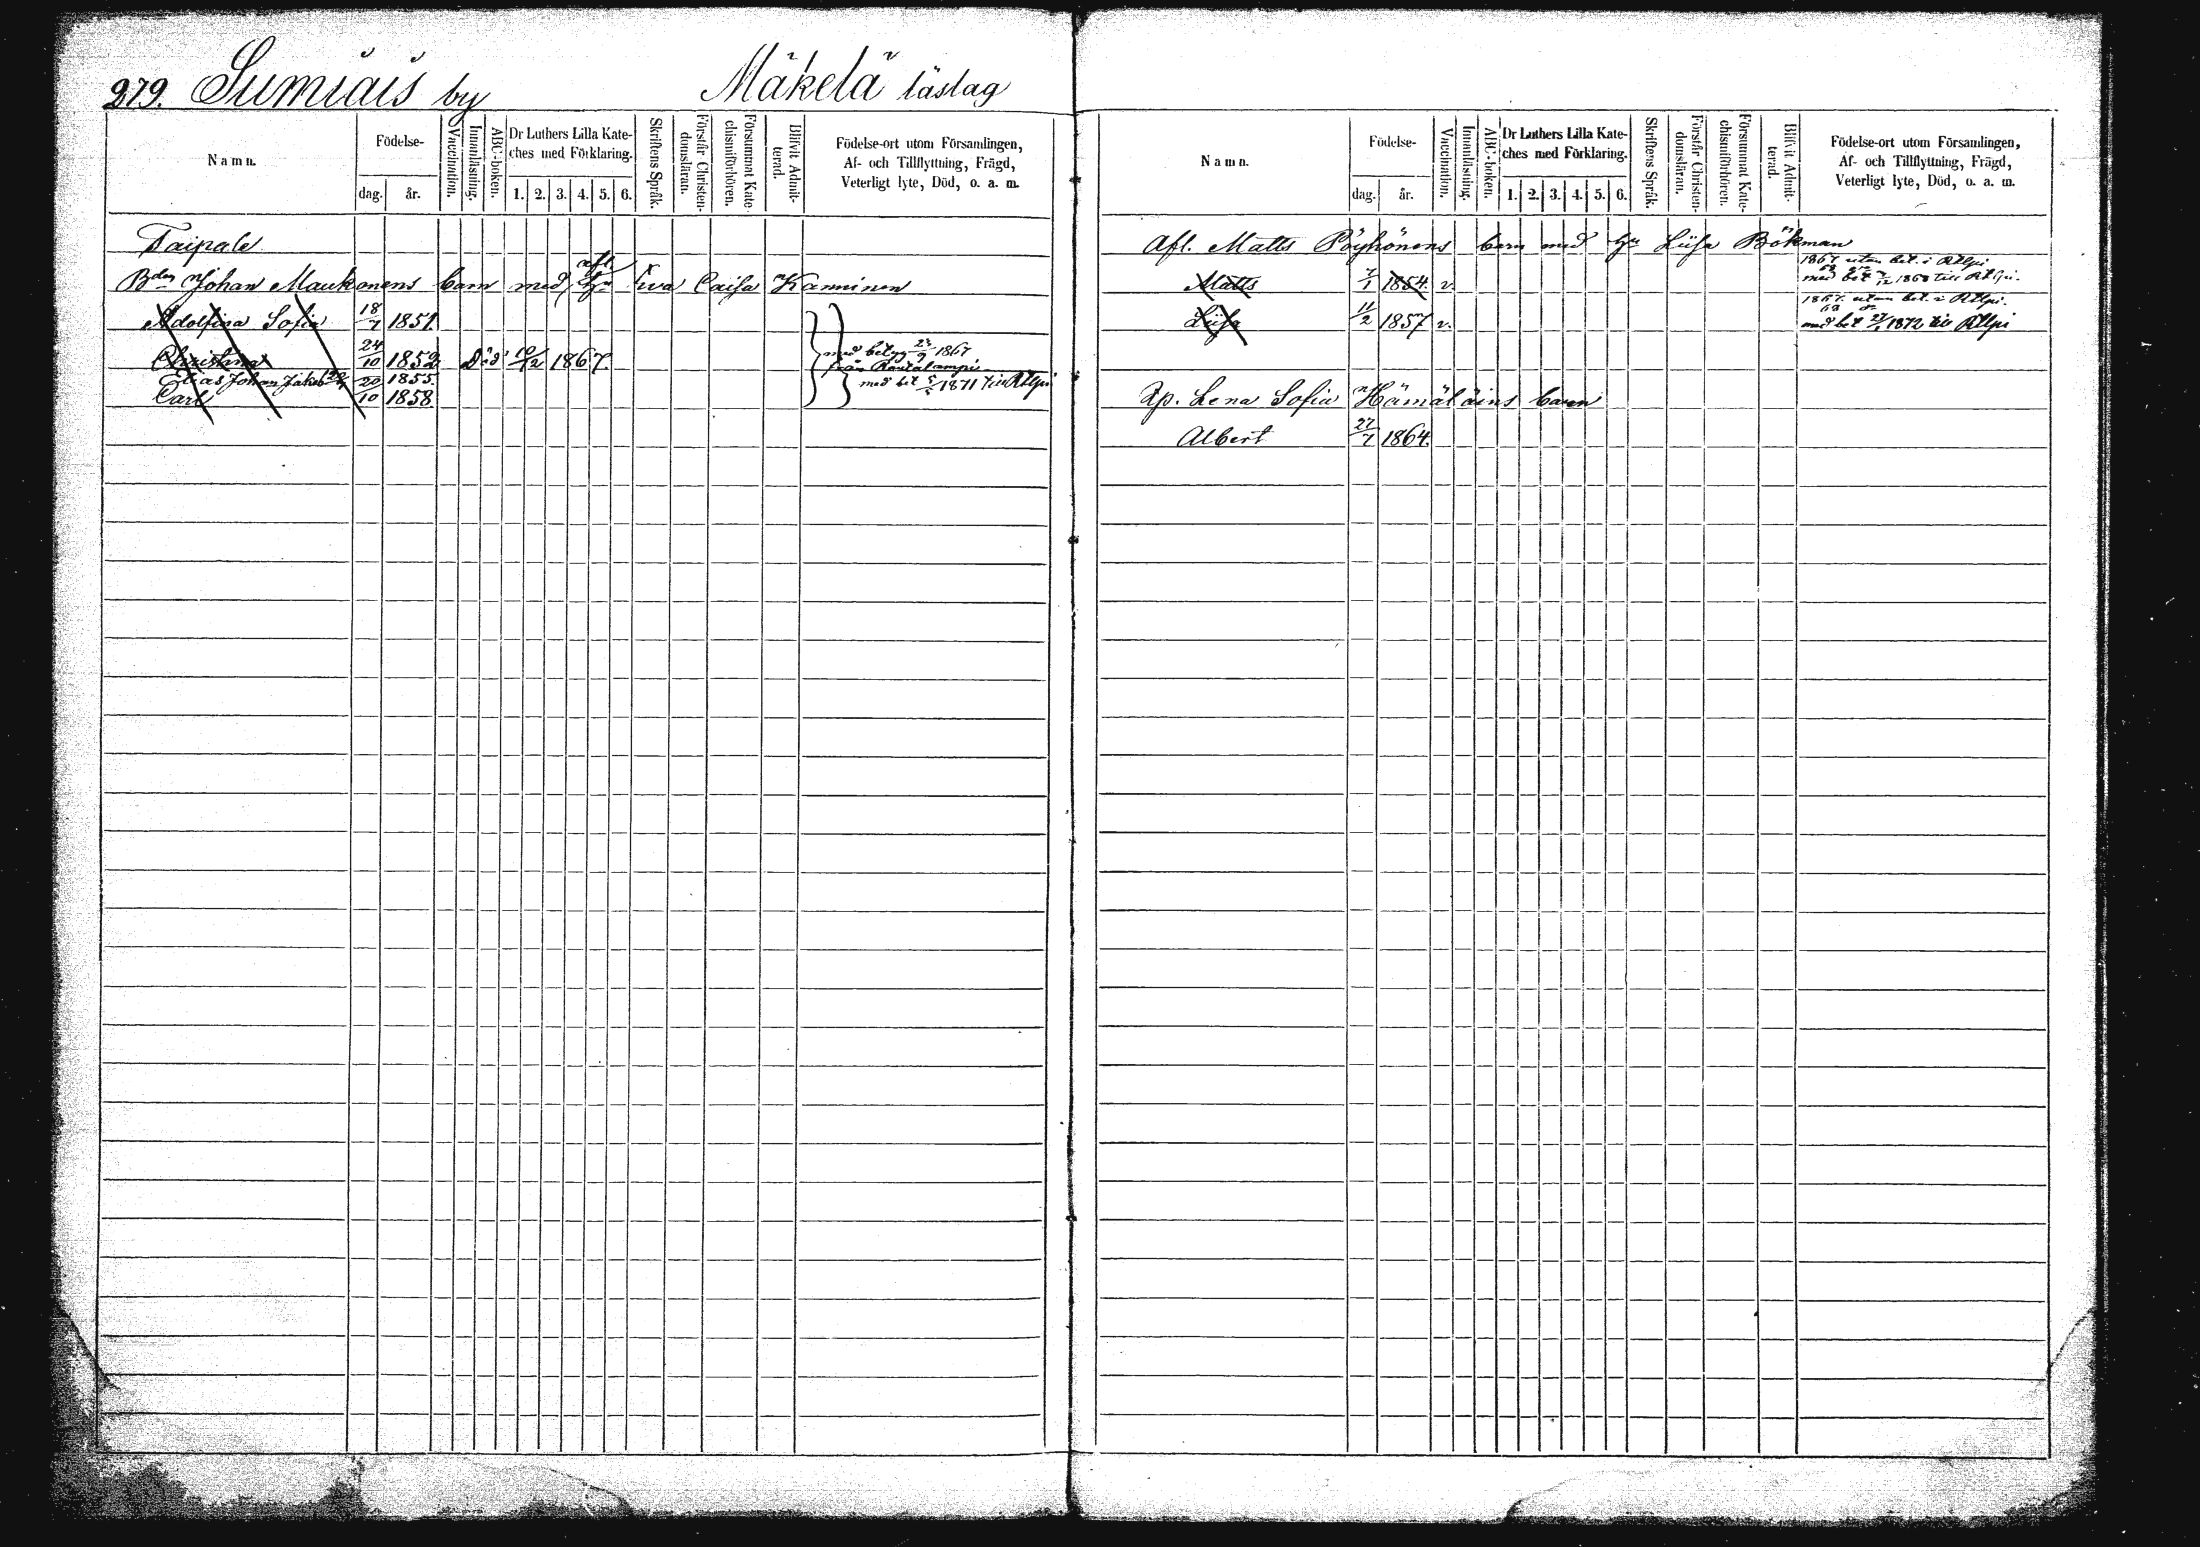 279. Sumiais by Mäkelä läslag
Namn. Födelse- dag. år. Vaccination. Innanläsning. ABC-boken. Dr Luthers Lilla Kateches med Förklaring. 1. 2. 3. 4. 5. 6. Skriftens Språk. Förstår Christendomsläran. Försummat Katechismiförhören. Blifvit Admitterad. Födelse-ort utom Församlingen, Af- och Tillflyttning, Frägd, Veterligt lyte, Död, o. a. m.
Taipale
afl.
Bden Johan Maukonens barn med Hu Eva Caisa Kanninen
Adolfina Sofia 18/7 1851.
Christina 24/10 1852 Död 10/12 1867.
med betyg 23/9 1867
från Rautalampi
Elias Johan Jakob 20 1855.
med bet 5/5 1871 till Rtlpi
Carl 20/10 1858.
Namn. Födelse- dag. år. Vaccination. Innanläsning. ABC-boken. Dr Luthers Lilla Kateches med Förklaring. 1. 2. 3. 4. 5. 6. Skriftens Språk. Förstår Christendomsläran. Försummat Katechismiförhören. Blifvit Admitterad. Födelse-ort utom Församlingen, Af- och Tillflyttning, Frägd, Veterligt lyte, Död, o. a. m.
Afl. Matts Pöyhönens barn med Hu Liisa Bökman
1867 utan bet. i Rtlpi
Matts 7/1 1854. v. med bet 1868 till Rtlpi.
1867. utan bet. i Rtlpi.
68
Liisa 11/2 1857 v. med bet 1872 till Rtlpi
Ip. Lena Sofia Hämäläins barn
Albert 27/7 1864.